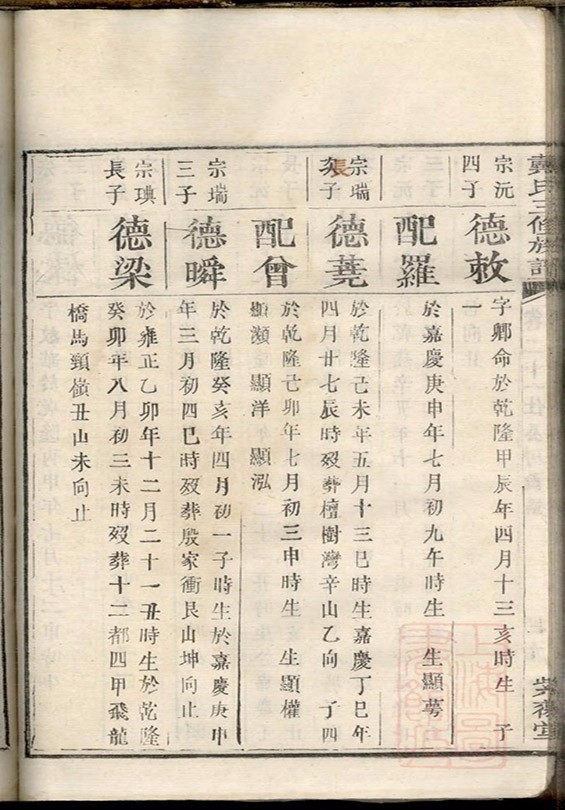 戴氏三修族譜
宗沅
四子
德敕
字卿命於乾隆甲辰年四月十三亥時生 子
一
配羅
於嘉慶庚申年七月初九午時生 生顯蕚
宗瑞
長子
德蕘
於乾隆己未年五月十三巳時生嘉慶丁巳年
四月廿七辰時歿葬檀樹灣辛山乙向 子四
配曾
於乾隆己卯年七月初三申時生 生顯權
顯瀕 顯洋 顯泓
宗瑞
三子
德瞬
於乾隆癸亥年四月初一子時生於嘉慶庚申
年三月初四巳時歿葬殷家衝艮山坤向止
宗琠
長子
德梁
於雍正乙卯年十二月二十一丑時生於乾隆
癸卯年八月初三未時歿葬十二都四甲飛龍
橋馬頸嶺丑山未向止